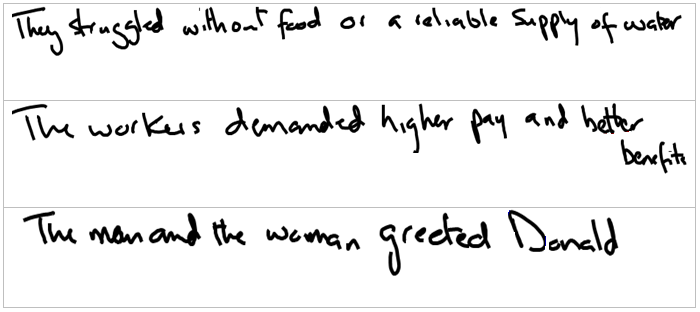 They struggled without food or a reliable supply of water
The workers demanded higher pay and better
benefits
The man and the woman greeted Donald